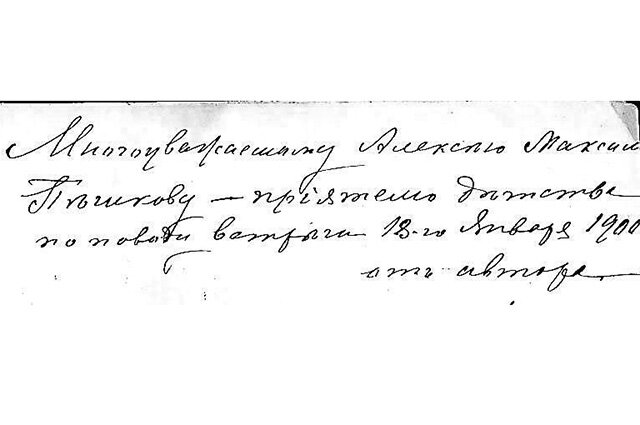 Многоуважаемому Алексѣю Максим
Пѣшкову — пріятелю дѣтства
по поводу встрѣчи 13-го Января 1900
отъ автора